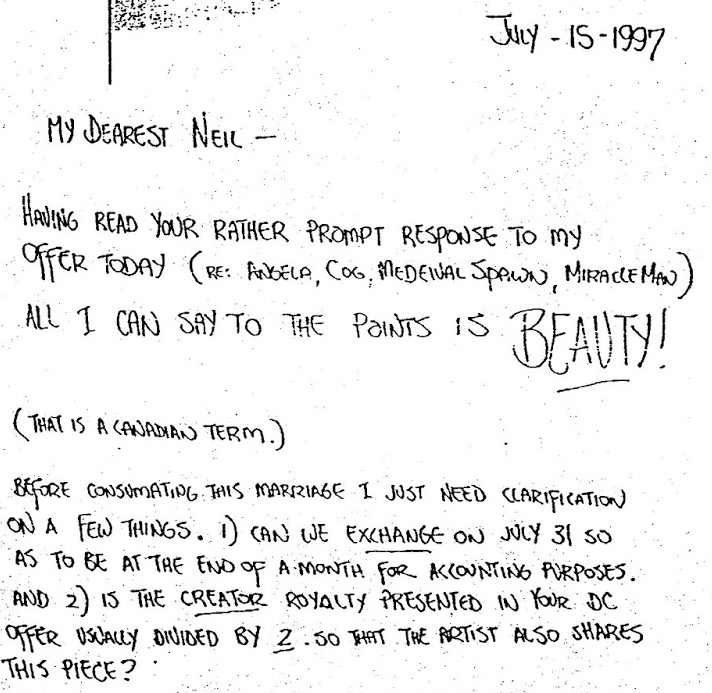 JULY - 15 - 1997
MY DEAREST NEIL —
HAVING READ YOUR RATHER PROMPT RESPONSE TO MY
OFFER TODAY (RE: ANGELA, COG, MEDEIVAL SPAWN, MIRACLE MAN)
ALL I CAN SAY TO THE POINTS IS BEAUTY!
(THAT IS A CANADIAN TERM.)
BEFORE CONSUMATING THIS MARRIAGE I JUST NEED CLARIFICATION
ON A FEW THINGS. 1) CAN WE EXCHANGE ON JULY 31 SO
AS TO BE AT THE END OF A MONTH FOR ACCOUNTING PURPOSES.
AND 2) IS THE CREATOR ROYALTY PRESENTED IN YOUR DC
OFFER USUALLY DIVIDED BY 2. SO THAT THE ARTIST ALSO SHARES
THIS PIECE?